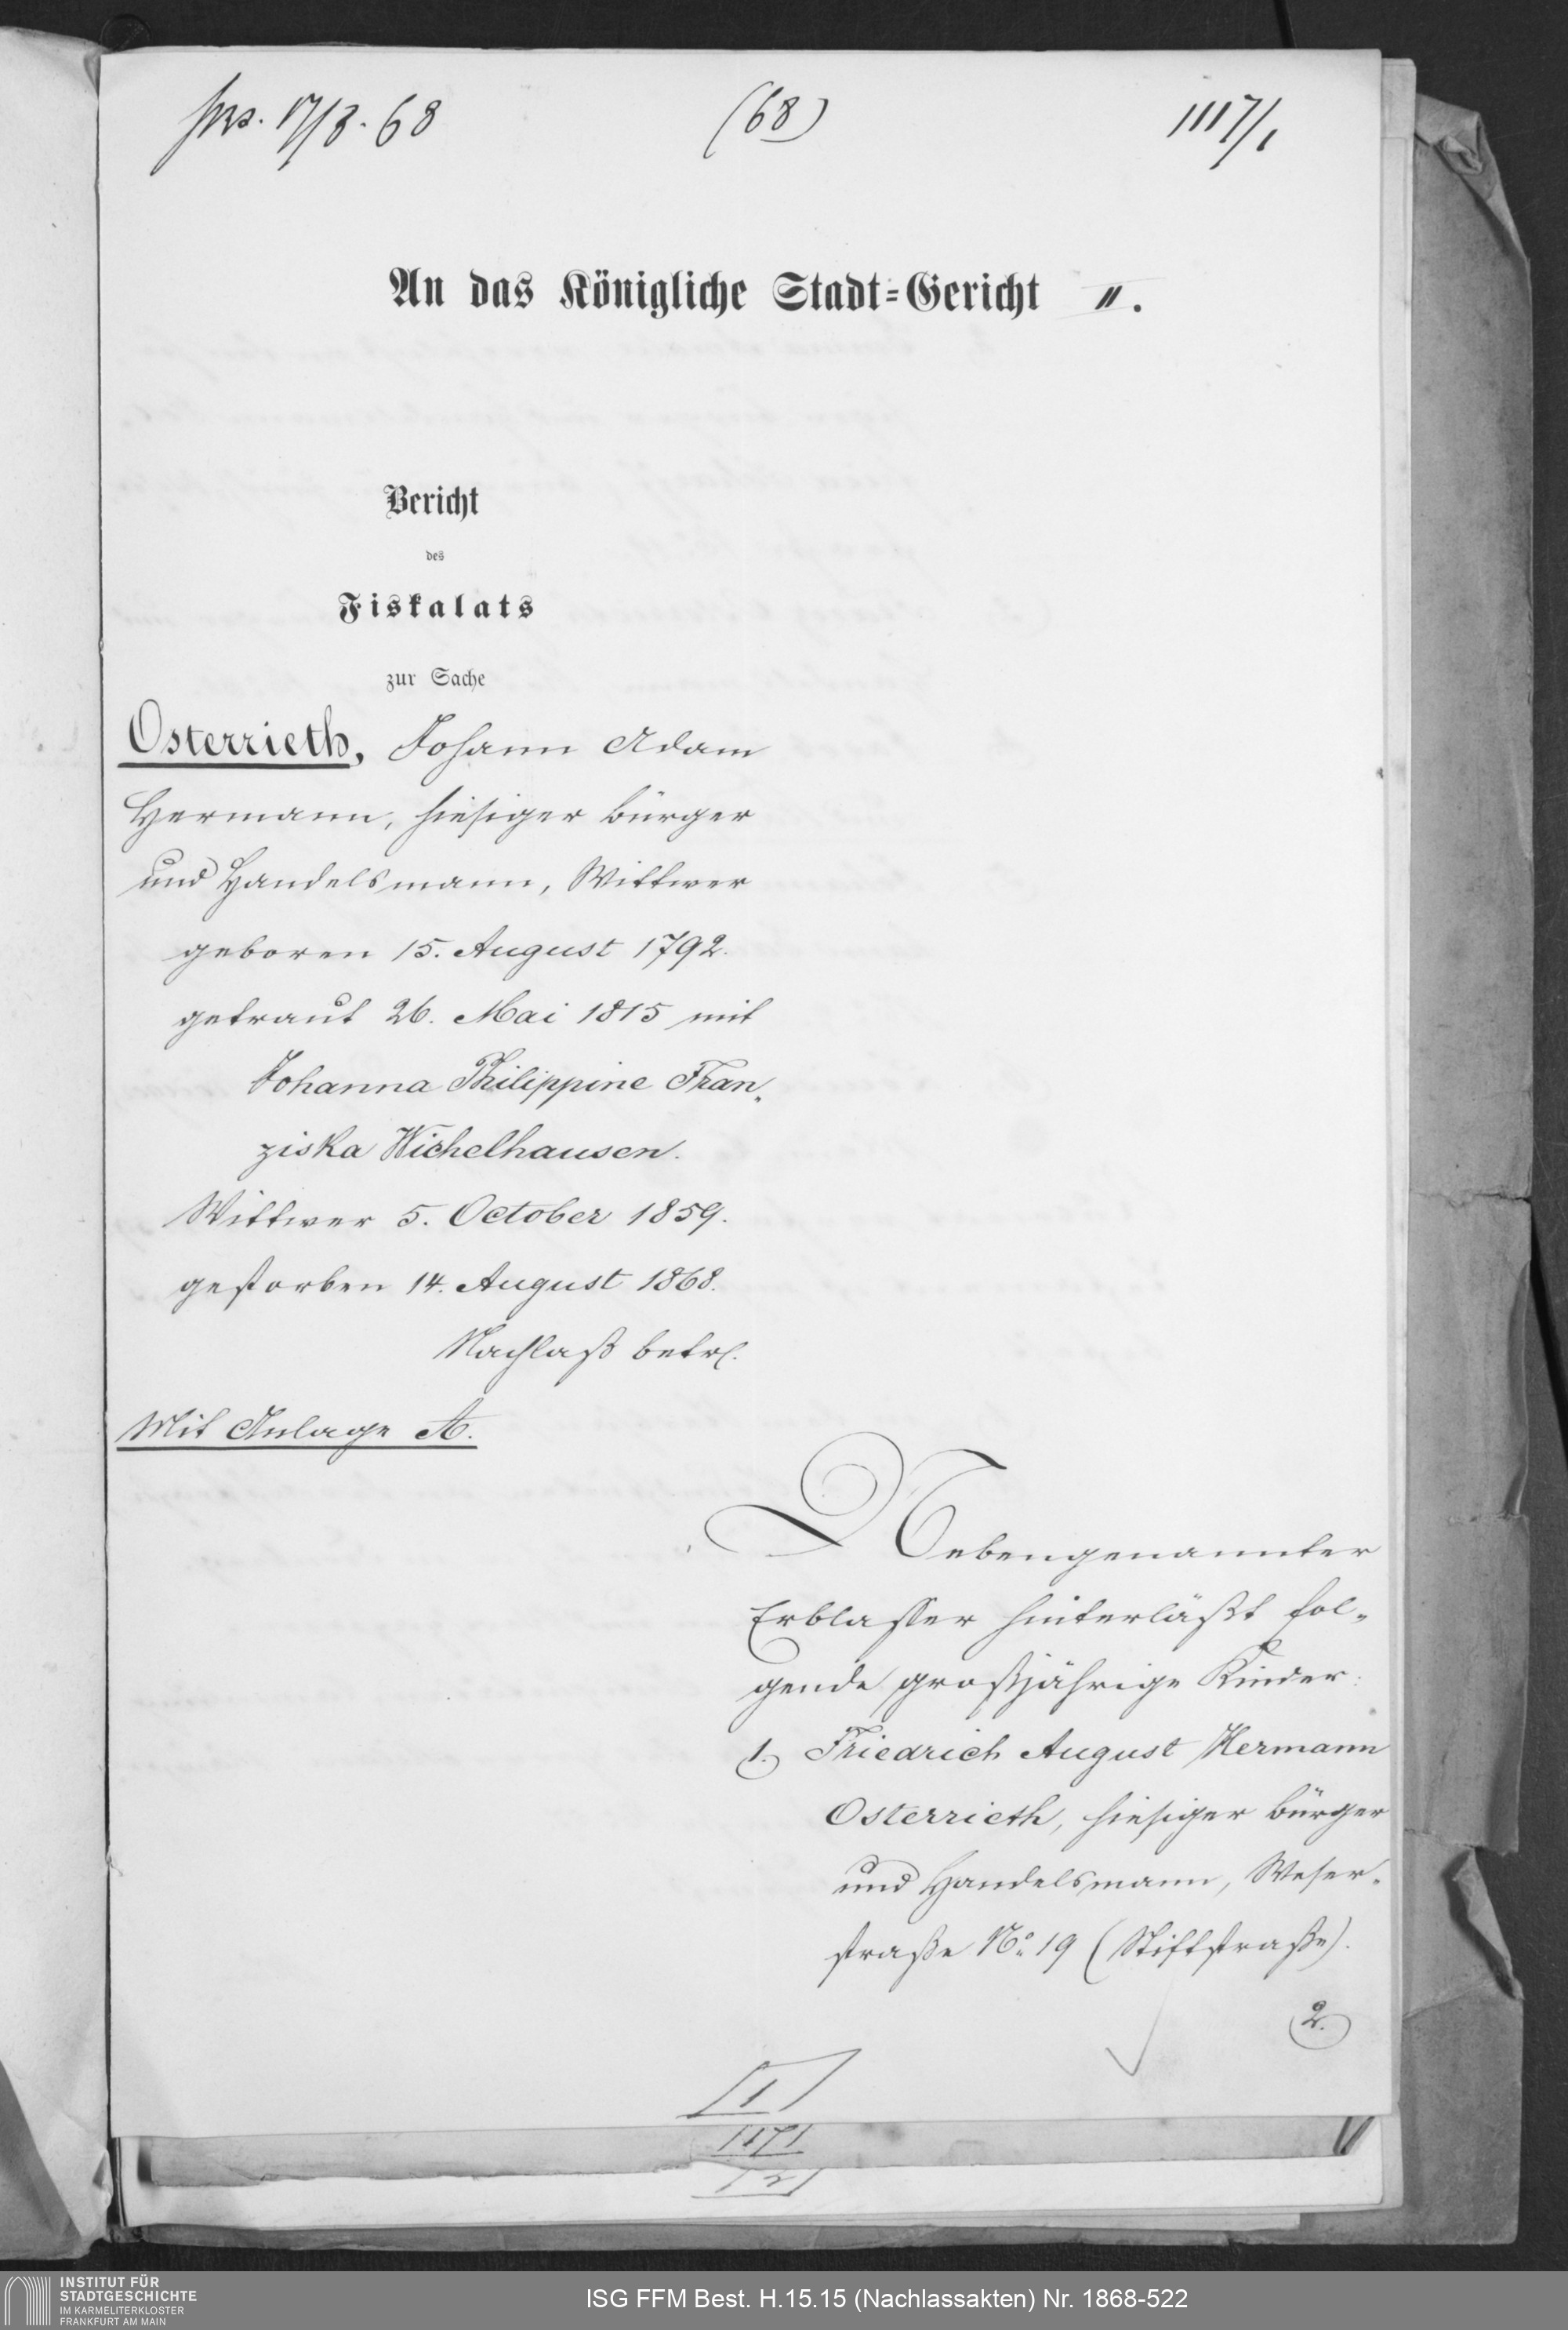 prs. 17/8. 68
(68)
1117/1
An das Königliche Stadt=Gericht II.
Bericht
des
Fiskalats
zur Sache
Osterrieth, Johann Adam
Hermann, hiesiger Bürger
und Handelsmann, Wittwer
geboren 15. August 1792.
getraut 26. Mai 1815 mit
Johanna Philippine Fran„
ziska Wichelhausen.
Wittwer 5. October 1859.
gestorben 14. August 1868.
Nachlaß betr.
Mit Anlage A.
Nebengenannter
Erblasser hinterläßt fol„
gende großjährige Kinder:
1.) Friedrich August Hermann
Osterrieth, hiesiger Bürger
und Handelsmann, Weser„
straße No. 19 (Stiftstraße).
2.)
1
INSTITUT FÜR
STADTGESCHICHTE
IM KARMELITERKLOSTER
FRANKFURT AM MAIN
ISG FFM Best. H.15.15 (Nachlassakten) Nr. 1868-522